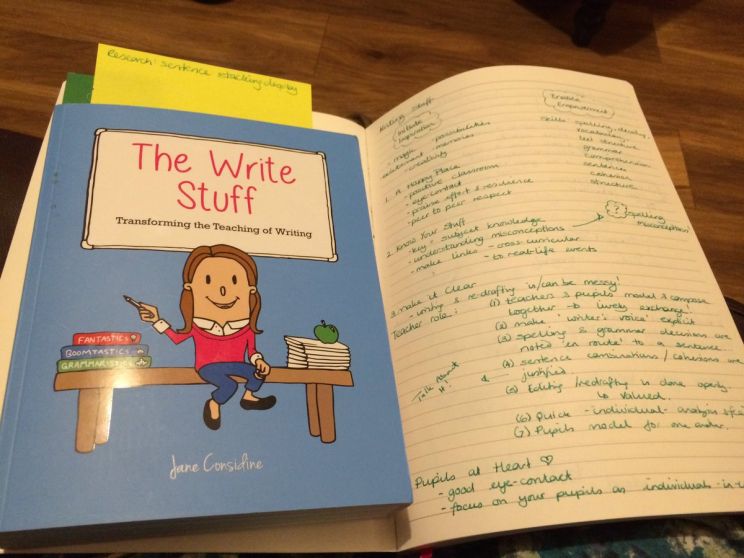 Research: sentence stacking
The Write
Stuff
Transforming the Teaching of Writing
FANTASTICS
BOOMTASTICS
GRAMMARISTICS
Jane Considine
Writing Stuff
Initiate
Inspiration
- magic - possibilities
excitement - memories
- creativity
Enable
Empowerment
skills: spelling, density,
vocabulary,
text structure
grammar
comprehension
sentences
cohesion
structure
1. A Happy Place
- positive classroom
- eye-contact
- praise effort & resilience
- peer to peer respect
?
spelling
misconceptions
2. Know Your Stuff
- key subject knowledge
- understanding misconceptions
- make links - cross curricular
- to real-life events
3. make it clear
- writing & re-drafting 'is/can be messy!'
Teacher role:
(1) teachers & pupils model & compose
together → lively exchange!
(2) make 'writer's voice' explicit
(3) spelling & grammar decisions are
noted 'en route' to a sentence.
(4) sentence combinations / cohesions are
justified
Talk About
it!
(5) Editing/redrafting is done openly
& valued.
(6) Quick - individual - analysis
(7) Pupils model for one another.
Pupils at Heart ♡
- good eye-contact
- focus on your pupils as individuals